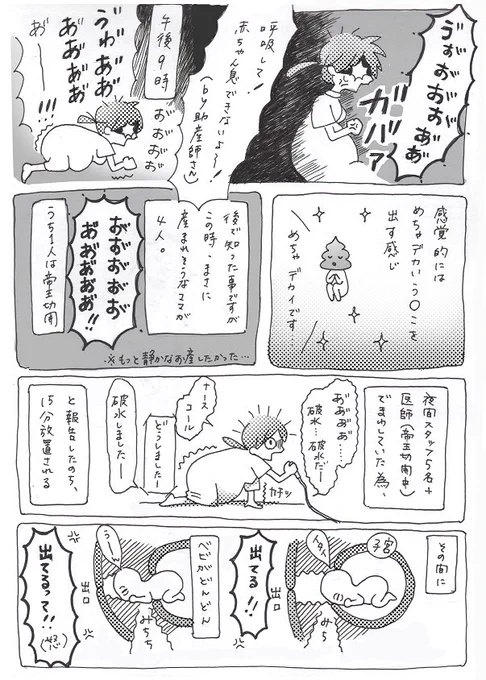 ゔおおおお
ああ
ガバァ
呼吸して！
赤ちゃん息できないよ〜！
（by助産師さん）
午後９時
おおおお
うわああ
ああああ
!!!
あ゛ー
感覚的には
めちゃデカいう○こを
出す感じ
めちゃデカイです…
後で知った事ですが
この時、まさに
産まれそうなママが
４人。
おおおおお
おああああ!!
うち１人は帝王切開
※もっと静かなお産したかった…
夜間スタッフ５名＋
医師（帝王切開中）
でまわしていた為、
あああああ…
破水…破水だー
カチッ
ナース
コール
どうしましたー
破水しましたー
と報告したのち、
１５分放置される
その間に
子宮
イタイ
みち
出口
出てる!!
ベビがどんどん
うーん
みちち
出口
出てるって!!
（怒）